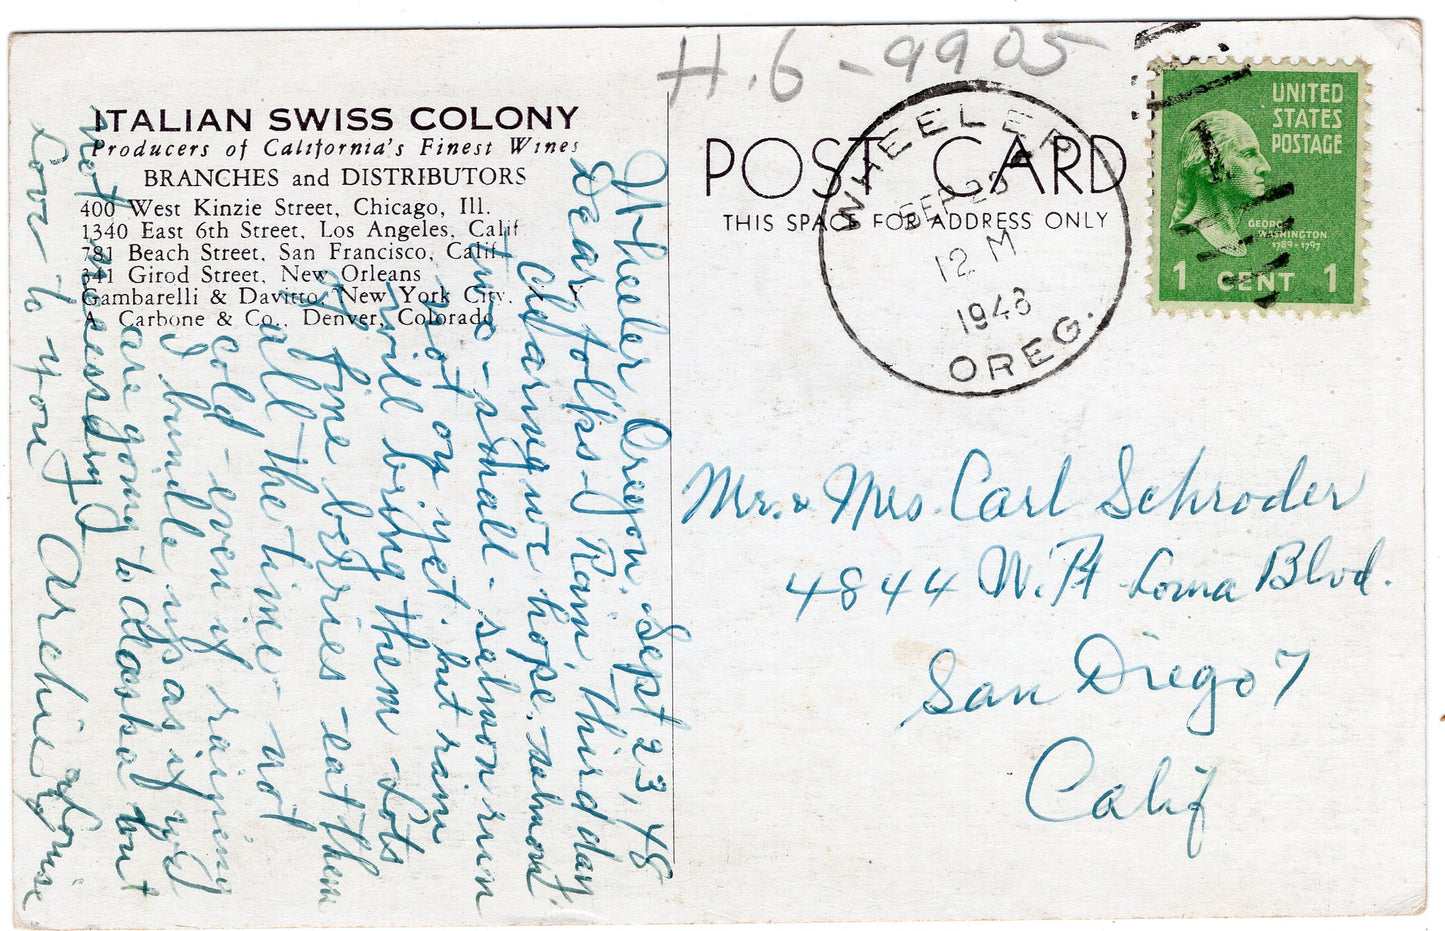 H.6-9905
ITALIAN SWISS COLONY
Producers of California's Finest Wines
BRANCHES and DISTRIBUTORS
400 West Kinzie Street, Chicago, Ill.
1340 East 6th Street, Los Angeles, Calif.
781 Beach Street, San Francisco, Calif.
341 Girod Street, New Orleans
Gambarelli & Davitto, New York City.
A. Carbone & Co., Denver, Colorado
POST CARD
THIS SPACE FOR ADDRESS ONLY
WHEELER
SEP 23
12 M
1948
OREG.
UNITED
STATES
POSTAGE
GEORGE
WASHINGTON
1789-1797
1 CENT 1
Wheeler Oregon. Sept 23, 48
Dear folks - Rain, third day
clearing we hope. - salmon
two - small - salmon run
not on yet. but rain
will bring them - Lots
of fine berries - eat them
all the time - not
cold - even if raining
I bundle up as if we
are going to Alaska but
not necessary
Love to you Archie & Louise
Mr. & Mrs. Carl Schroder
4844 W. Pt Loma Blvd.
San Diego 7
Calif